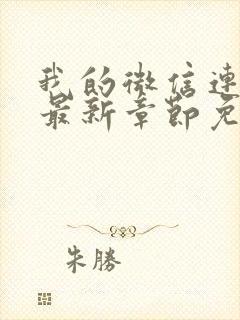 我的微信连
最新章节免
朱勝